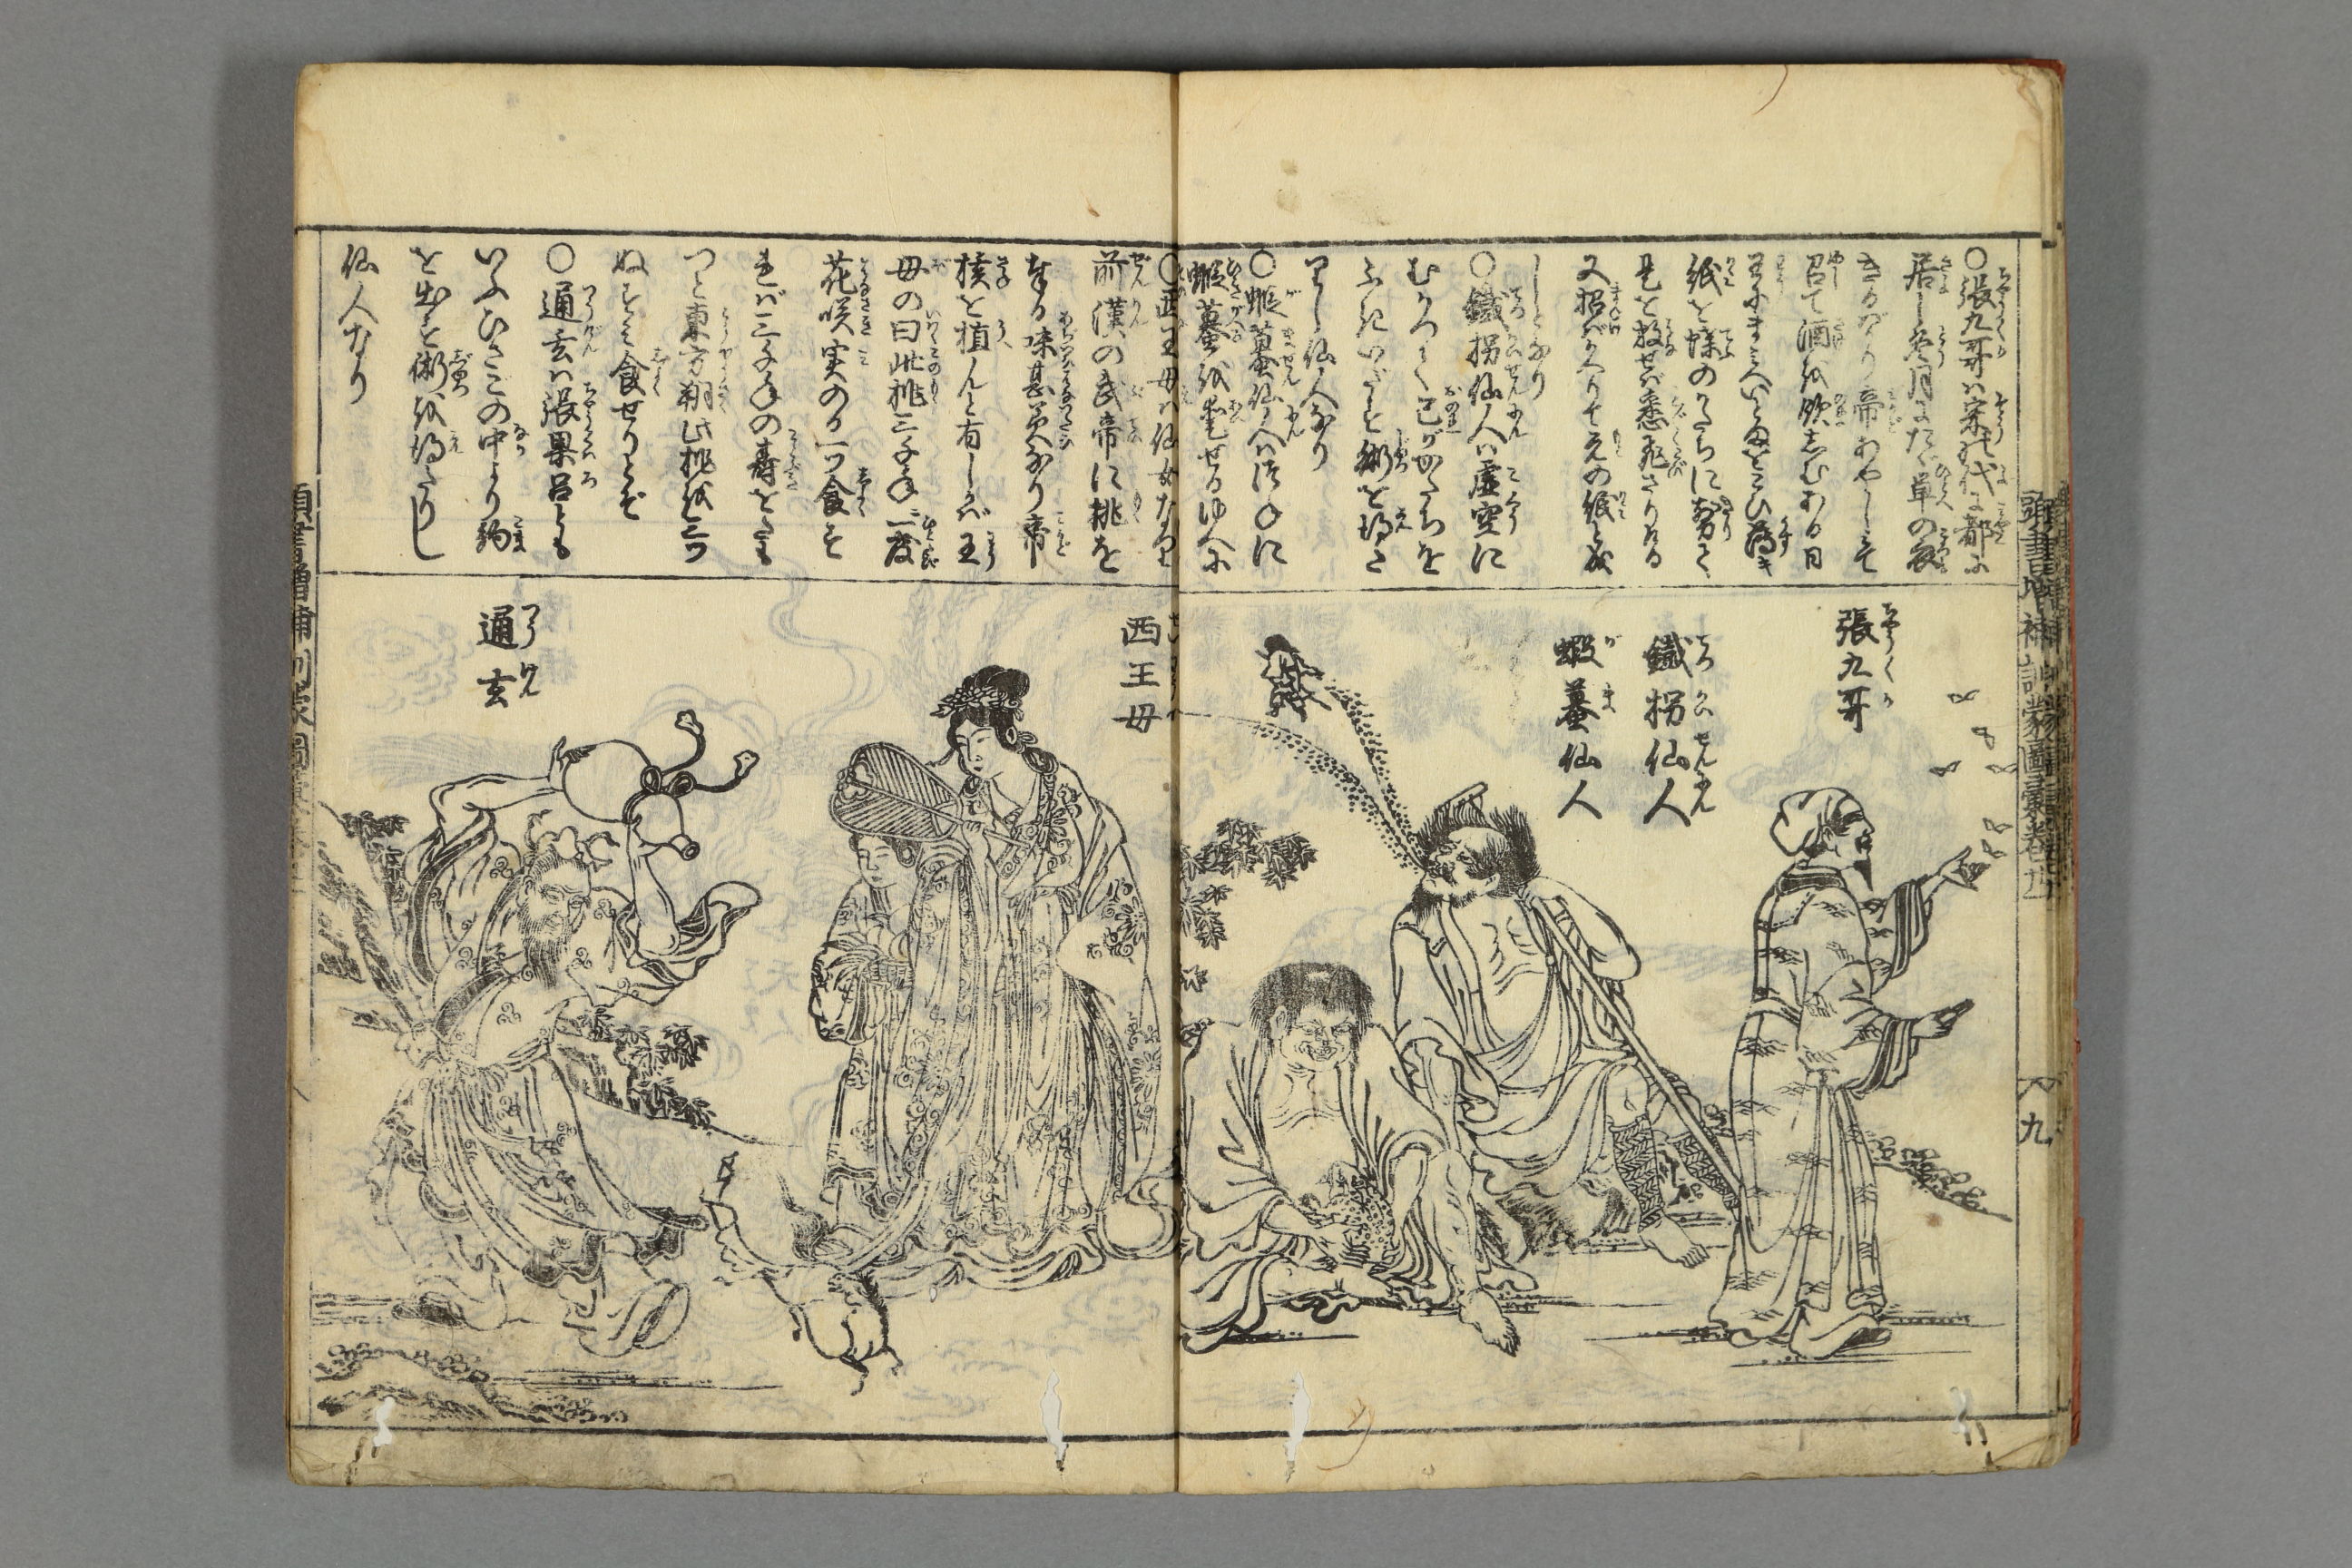 ○張九哥ハ宋の代に都に
居し冬月にたゞ単の衣
きるばかり帝あやしミて
召て酒を飲しむある日
王にまミへいとまをこひ薄き
紙を蝶のかたちに剪て
是を放せバ悉飛さりける
又招バかへりて元の紙と成
しとなり
○鐵拐仙人ハ虚空に
むかつて己がかたちを
ふきいだす術を得た
りし仙人なり
○蝦蟇仙人ハつねに
蝦蟇を愛せるゆへに
張九哥
鐵拐仙人
蝦蟇仙人
頭書増補訓蒙圖彙巻之
九
○西王母ハ仙女なり
前漢の武帝に桃を
奉る味甚美なり帝
核を植んと有しかバ王
母の曰此桃三千年一度
花咲実のり一ツ食す
れバ三千年の寿をたも
つと東方朔此桃を三ツ
ぬすミ食せりとぞ
○通玄ハ張果呂とも
いふひさごの中より駒
を出す術を得たりし
仙人なり
西王母
通玄